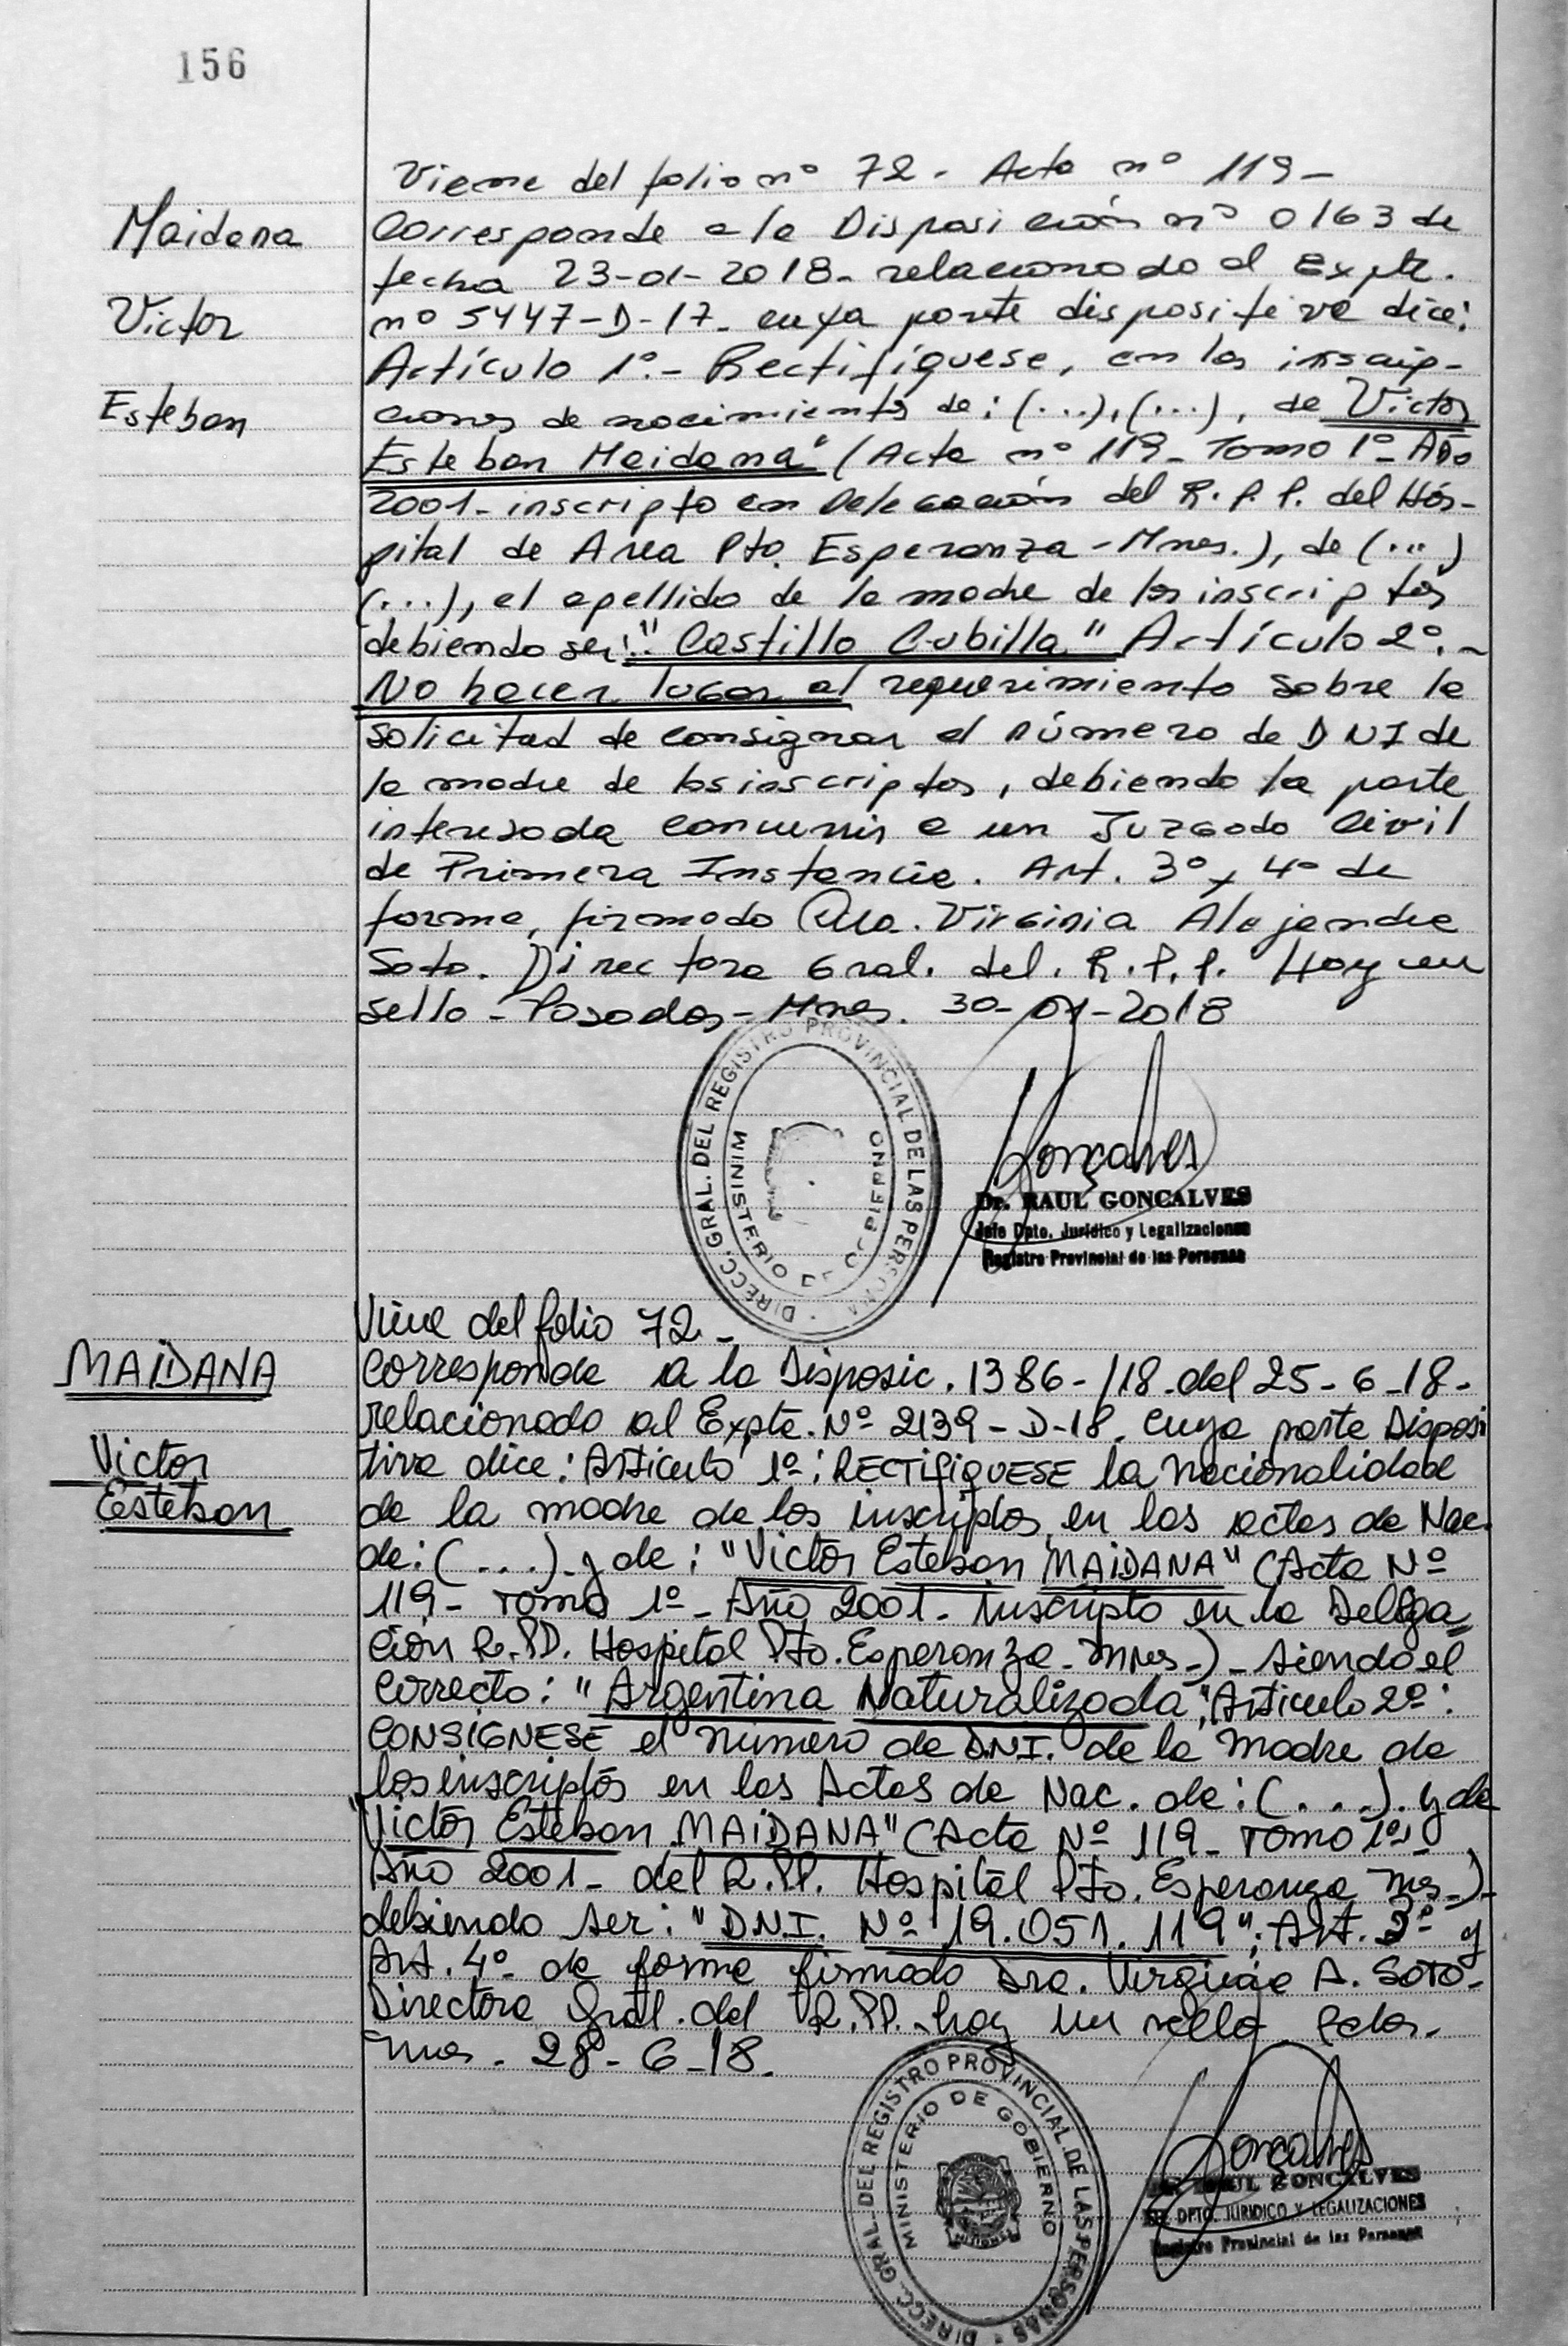 156
Viene del folio nº 72 - Acta nº 119 -
Maidana
Corresponde a la Disposición nº 0163 de
fecha 23-01-2018- relacionado al Expte.
Victor
nº 5447-D-17- cuya parte dispositiva dice:
Artículo 1º.- Rectifíquese, en las inscrip-
Esteban
ciones de nacimientos de: (...), (...), de Victor
Esteban Maidana" (Acta nº 119- Tomo 1º- Año
2001- inscripto en Delegación del R.P.P. del Hós-
pital de Area Pto. Esperanza - Mnes.), de (...)
(...), el apellido de la madre de los inscriptos
debiendo ser: "Castillo Cubilla" Artículo 2º.-
No hacer lugar al requerimiento sobre la
solicitud de consignar el número de DNI de
la madre de los inscriptos, debiendo la parte
interesada concurrir a un Juzgado Civil
de Primera Instancia. Art. 3º y 4º de
forma, firmado Dra. Virginia Alejandra
Soto. Directora Gral. del. R.P.P. Hay un
sello - Posadas - Mnes. 30-01-2018
DIRECC. GRAL. DEL REGISTRO PROVINCIAL DE LAS PERSONA
MINISTERIO DE GOBIERNO
Goncalves
Dr. RAUL GONCALVES
Jefe Dpto. Jurídico y Legalizaciones
Registro Provincial de las Personas
Viene del folio 72.-
MAIDANA
Corresponde a la Disposic. 1386-/18 del 25-6-18-
relacionado al Expte. Nº 2139-D-18. cuya parte Disposi
Victor
tiva dice: Articulo 1º: RECTIFIQUESE la nacionalidad
Esteban
de la madre de los inscriptos en las actas de Nac.
de: (...) y de: "Victor Esteban MAIDANA" (Acta Nº
119- Tomo 1º- Año 2001- inscripto en la Delega
cion R.PP. Hospital Pto. Esperanza- Mnes-)- siendo el
correcto: "Argentina Naturalizada", Articulo 2º:
CONSIGNESE el número de D.N.I. de la madre de
los inscriptos en las Actas de Nac. de: (...). y de
"Victor Esteban MAIDANA" (Acta Nº 119- Tomo 1º-
Año 2001- del R.PP. Hospital Pto. Esperanza Mes-)-
debiendo ser: "D.N.I. Nº 19.051.119"; Art. 3º y
Art. 4º de forma firmado Dra. Virginia A. SOTO-
Directora Gral. del R.PP. hay un sello. Pdas.
Mnes. 28-6-18.
DIRECC. GRAL. DEL REGISTRO PROVINCIAL DE LAS PERSONAS
MINISTERIO DE GOBIERNO
Goncalves
RAUL GONCALVES
DPTO. JURIDICO Y LEGALIZACIONES
Registro Provincial de las Personas